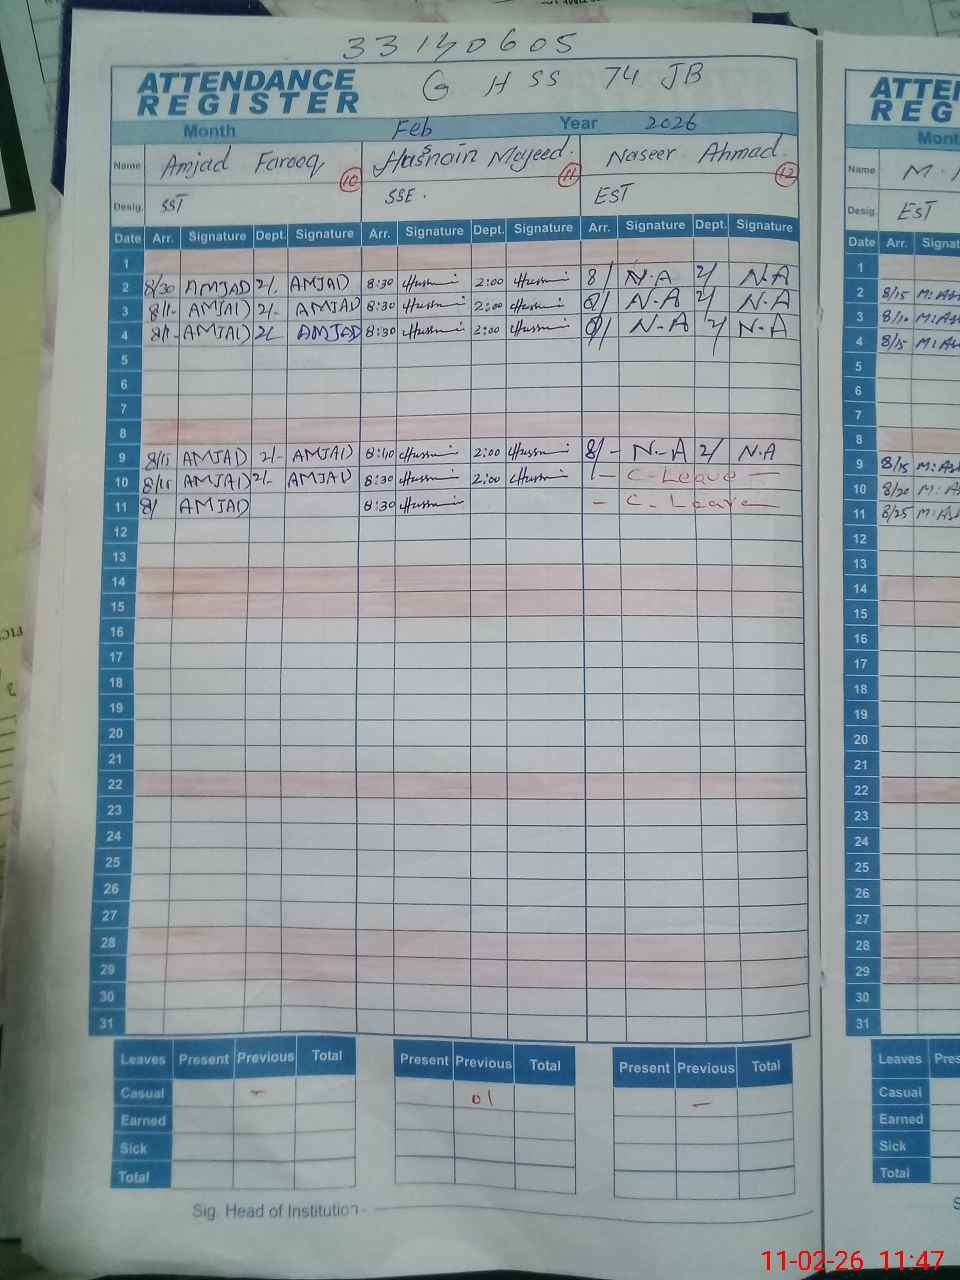 33140605
ATTENDANCE REGISTER
G H SS 74 JB
Month Feb Year 2026
Name Amjad Farooq 10 Hasnain Majeed. 11 Naseer Ahmad. 12
Desig. SST SSE. EST
Date Arr. Signature Dept. Signature Arr. Signature Dept. Signature Arr. Signature Dept. Signature
1
2 8/30 AMJAD 2/. AMJAD 8:30 2:00 8/ N.A 2/ N.A
3 8/1- AMJAD 2/- AMJAD 8:30 2:00 8/ N-A 2/ N-A
4 8/1- AMJAD 2/ AMJAD 8:30 2:00 8/ N-A 2/ N-A
5
6
7
8
9 8/15 AMJAD 2/- AMJAD 8:40 2:00 8/- N-A 2/ N.A
10 8/15 AMJAD 2/- AMJAD 8:30 2:00 - C-Leave -
11 8/ AMJAD 8:30 - C-Leave
12
13
14
15
16
17
18
19
20
21
22
23
24
25
26
27
28
29
30
31
Leaves Present Previous Total Present Previous Total Present Previous Total
Casual - 01 -
Earned
Sick
Total
Sig. Head of Institution
ATTEN
REG
Month
Name M.
Desig. EST
Date Arr. Signat
1
2 8/15
3 8/10
4 8/15
5
6
7
8
9 8/15
10 8/20
11 8/25
12
13
14
15
16
17
18
19
20
21
22
23
24
25
26
27
28
29
30
31
Leaves Pres
Casual
Earned
Sick
Total
S
11-02-26 11:47